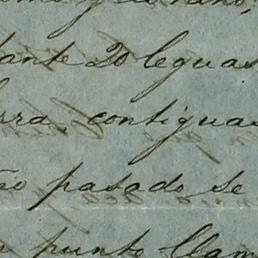 tante 20 leguas
rra, contigua
ño pasado se
punto llam